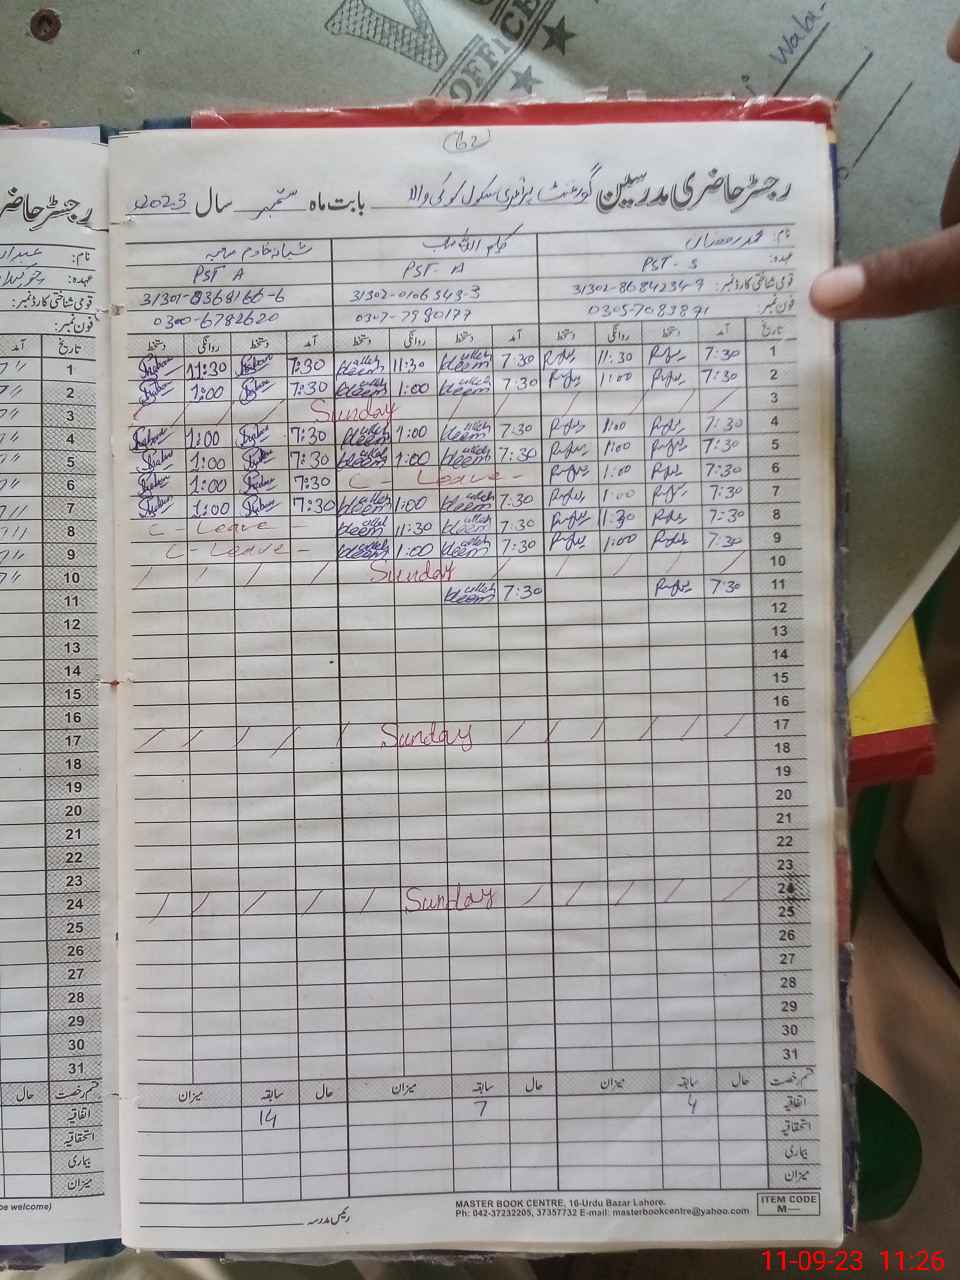 OFFICE
Wala-
62
رجسٹر حاضری مدرسین گورنمنٹ پرائمری سکول کوکی والا بابت ماہ ستمبر سال 2023ء
نام: محمد رمضان کلیم اللہ صاحب شبانہ خادم صاحبہ
عہدہ: PST-S PST-A PST A
قومی شناختی کارڈ نمبر: 31302-8684234-9 31302-0106343-3 31301-8368166-6
فون نمبر: 0305-7083891 0307-7990177 0300-6782620
تاریخ آمد دستخط روانگی دستخط آمد دستخط روانگی دستخط آمد دستخط روانگی دستخط
1 7:30 11:30 7:30 kleem ullah 11:30 kleem ullah 7:30 11:30
2 7:30 1:00 7:30 kleem ullah 1:00 kleem ullah 7:30 1:00
3 Sunday
4 7:30 1:00 7:30 kleem ullah 1:00 kleem ullah 7:30 1:00
5 7:30 1:00 7:30 kleem ullah 1:00 kleem ullah 7:30 1:00
6 7:30 1:00 C - Leave - 7:30 1:00
7 7:30 1:00 7:30 kleem ullah 1:00 kleem ullah 7:30 1:00
8 7:30 11:30 7:30 kleem ullah 11:30 kleem ullah C - Leave -
9 7:30 1:00 7:30 kleem ullah 1:00 kleem ullah C - Leave -
10 Sunday
11 7:30 7:30 kleem ullah
12
13
14
15
16
17 Sunday
18
19
20
21
22
23
24 Sunday
25
26
27
28
29
30
31
قسم رخصت حال سابقہ میزان حال سابقہ میزان حال سابقہ میزان
اتفاقیہ 4 7 14
استحقاقیہ
بیماری
میزان
رئیس مدرسہ
MASTER BOOK CENTRE, 16-Urdu Bazar Lahore.
Ph: 042-37232205, 37357732 E-mail: masterbookcentre@yahoo.com
ITEM CODE
M—
رجسٹر حاضر
نام:
عہدہ:
قومی شناختی کارڈ نمبر:
فون نمبر:
تاریخ آمد
1
2
3
4
5
6
7
8
9
10
11
12
13
14
15
16
17
18
19
20
21
22
23
24
25
26
27
28
29
30
31
قسم رخصت حال
اتفاقیہ
استحقاقیہ
بیماری
میزان
be welcome)
11-09-23 11:26